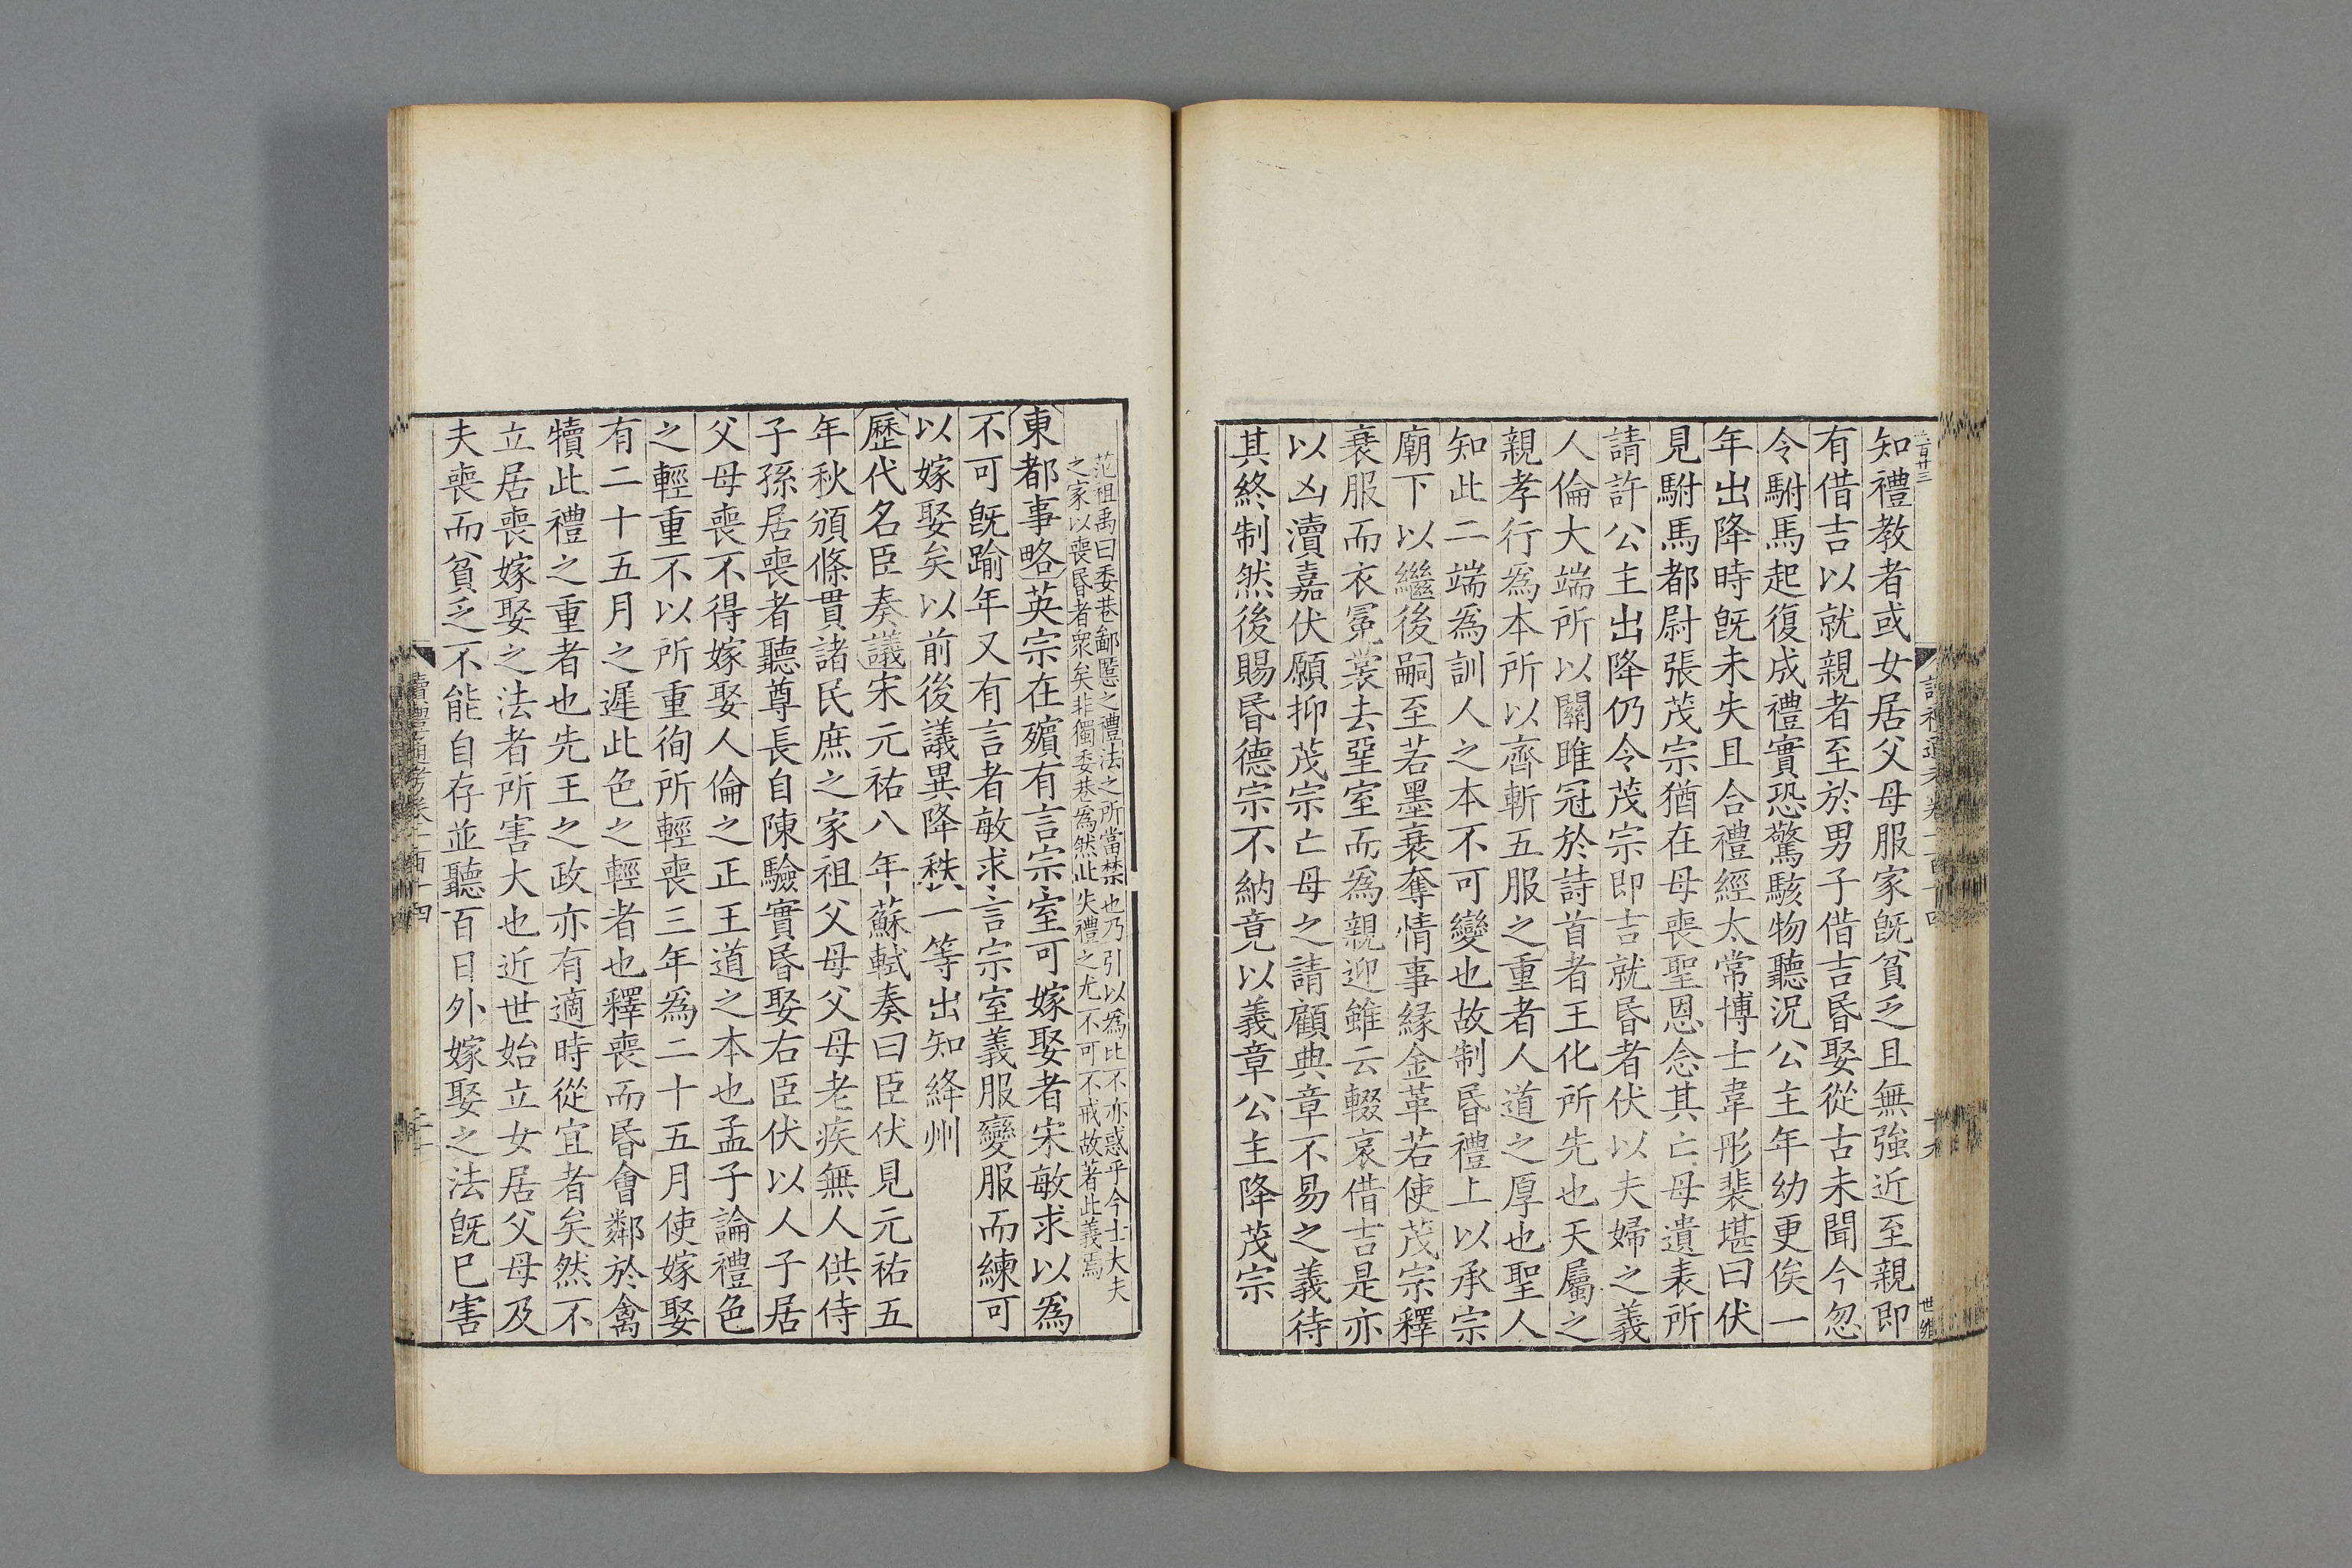 知禮教者或女居父母服家旣貧乏且無強近至親即
有借吉以就親者至於男子借吉昬娶從古未聞今忽
令駙馬起復成禮實恐驚駭物聽況公主年幼更俟一
年出降時旣未失且合禮經太常博士韋彤裴堪曰伏
見駙馬都尉張茂宗猶在母喪聖恩念其亡母遺表所
請許公主出降仍令茂宗即吉就昬者伏以夫婦之義
人倫大端所以關雎冠於詩首者王化所先也天屬之
親孝行爲本所以齊斬五服之重者人道之厚也聖人
知此二端爲訓人之本不可變也故制昬禮上以承宗
廟下以繼後嗣至若墨衰奪情事緣金革若使茂宗釋
衰服而衣冕裳去堊室而爲親迎雖云輟哀借吉是亦
以凶瀆嘉伏願抑茂宗亡母之請顧典章不易之義待
其終制然後賜昬德宗不納竟以義章公主降茂宗
范祖禹曰委巷鄙慝之禮法之所當禁也乃引以爲比不亦惑乎今士大夫
之家以喪昬者衆矣非獨委巷爲然此失禮之尤不可不戒故著此義焉
東都事略英宗在殯有言宗室可嫁娶者宋敏求以爲
不可旣踰年又有言者敏求言宗室義服變服而練可
以嫁娶矣以前後議異降秩一等出知絳州
歷代名臣奏議宋元祐八年蘇軾奏曰臣伏見元祐五
年秋頒條貫諸民庶之家祖父母父母老疾無人供侍
子孫居喪者聽尊長自陳驗實昬娶右臣伏以人子居
父母喪不得嫁娶人倫之正王道之本也孟子論禮色
之輕重不以所重徇所輕喪三年爲二十五月使嫁娶
有二十五月之遲此色之輕者也釋喪而昬會鄰於禽
犢此禮之重者也先王之政亦有適時從宜者矣然不
立居喪嫁娶之法者所害大也近世始立女居父母及
夫喪而貧乏不能自存並聽百日外嫁娶之法旣已害
讀禮通考卷一百十四